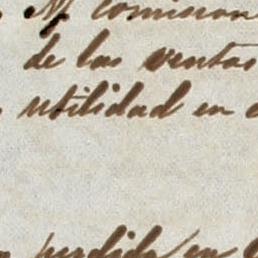 M comision
de las ventas
utilidad en
perdida en